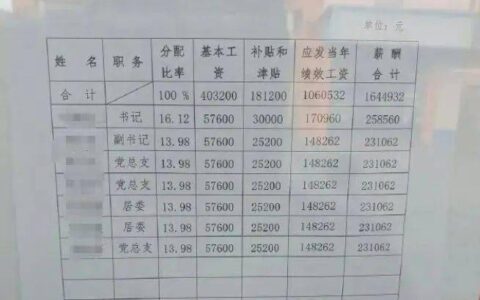 单位：元
姓 名 职 务 分配比率 基本工资 补贴和津贴 应发当年绩效工资 薪酬合计
合 计 100 % 403200 181200 1060532 1644932
书记 16.12 57600 30000 170960 258560
副书记 13.98 57600 25200 148262 231062
党总支 13.98 57600 25200 148262 231062
党总支 13.98 57600 25200 148262 231062
居委 13.98 57600 25200 148262 231062
居委 13.98 57600 25200 148262 231062
党总支 13.98 57600 25200 148262 231062